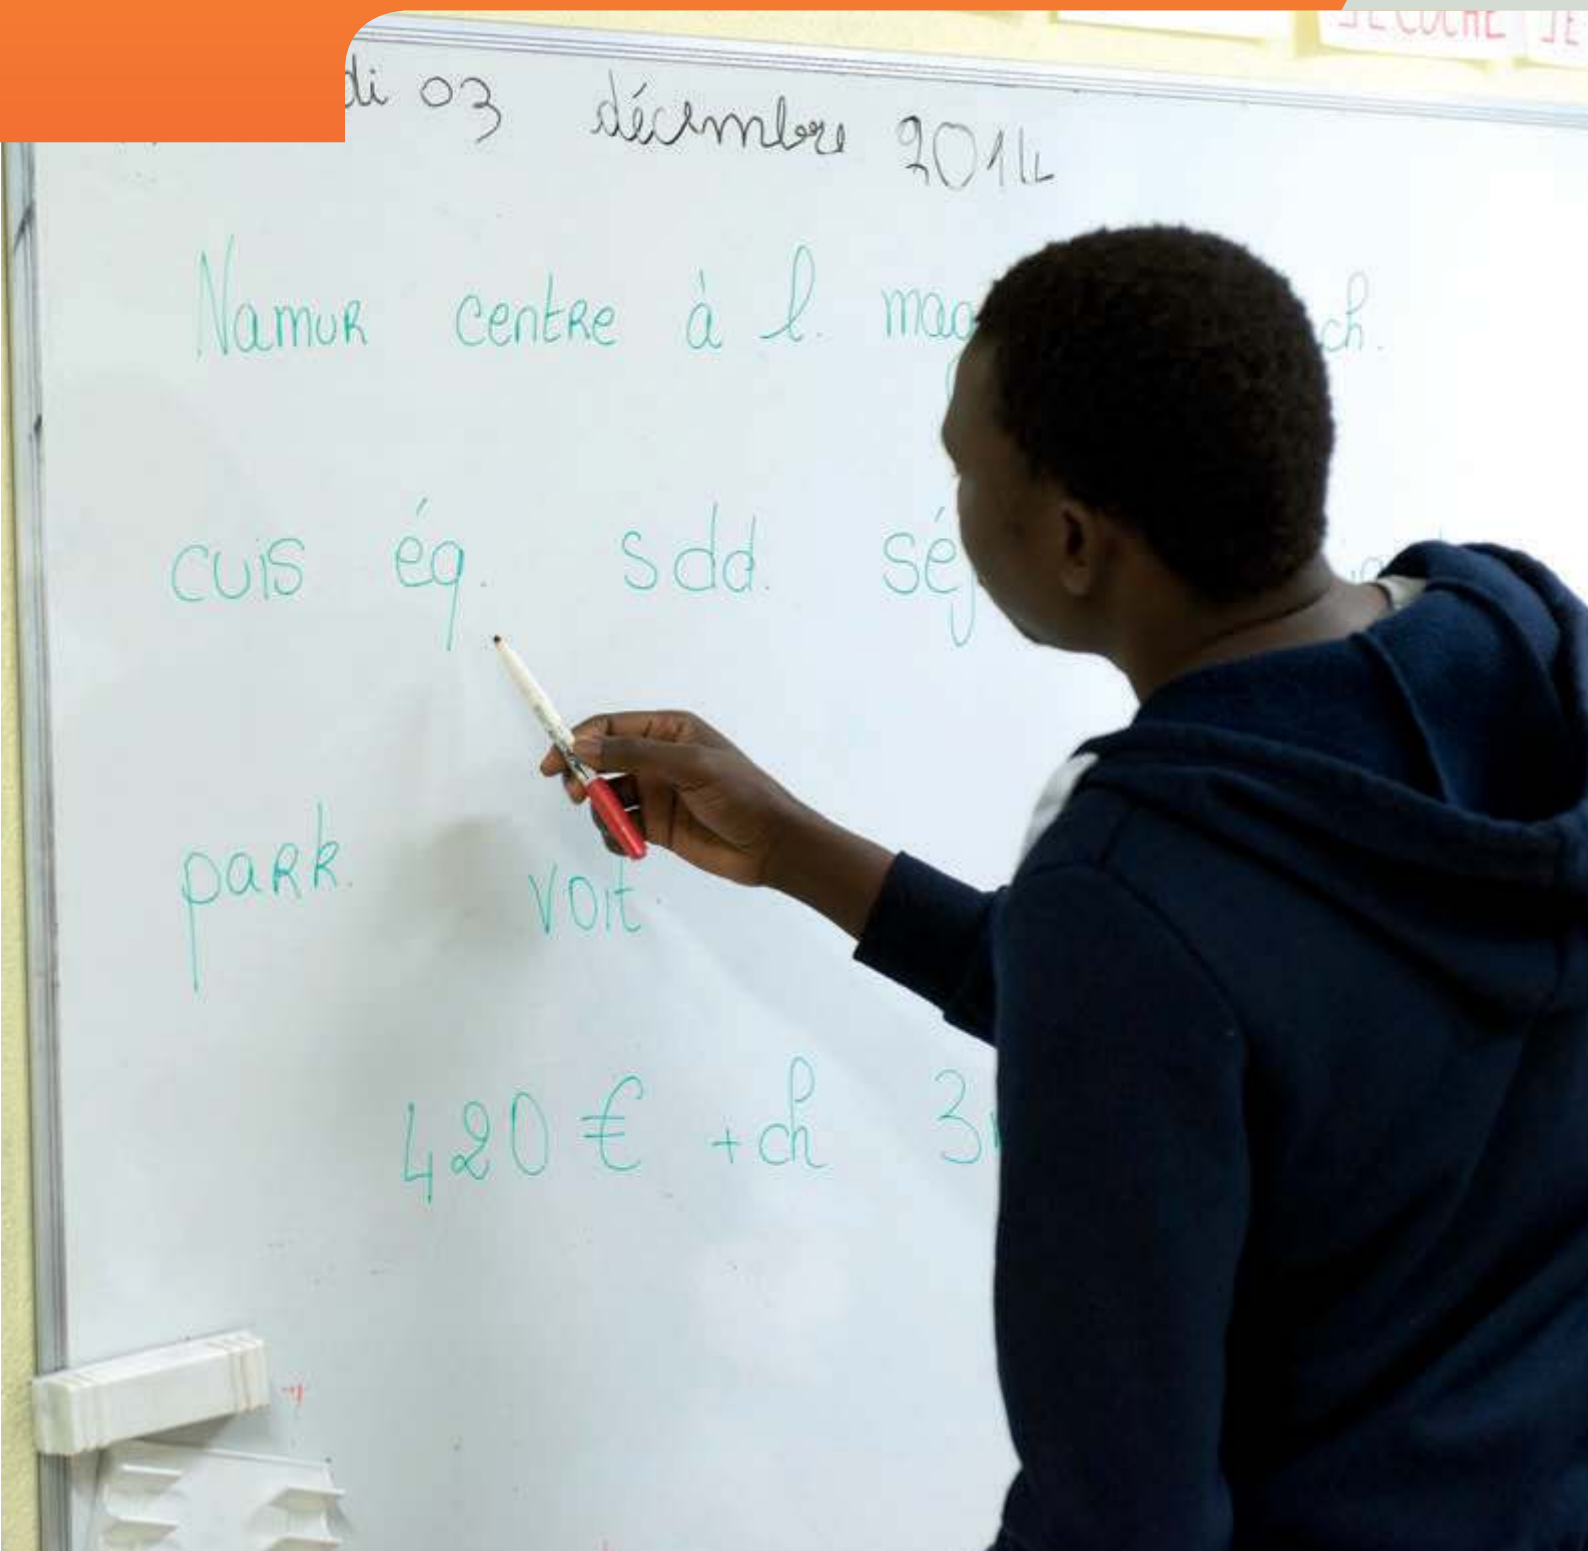 JE COCHE JE
di 03 décembre 2014
Namur centre à l. mag ch.
cuis éq. sdd. séj
park. voit.
420 € + ch 3